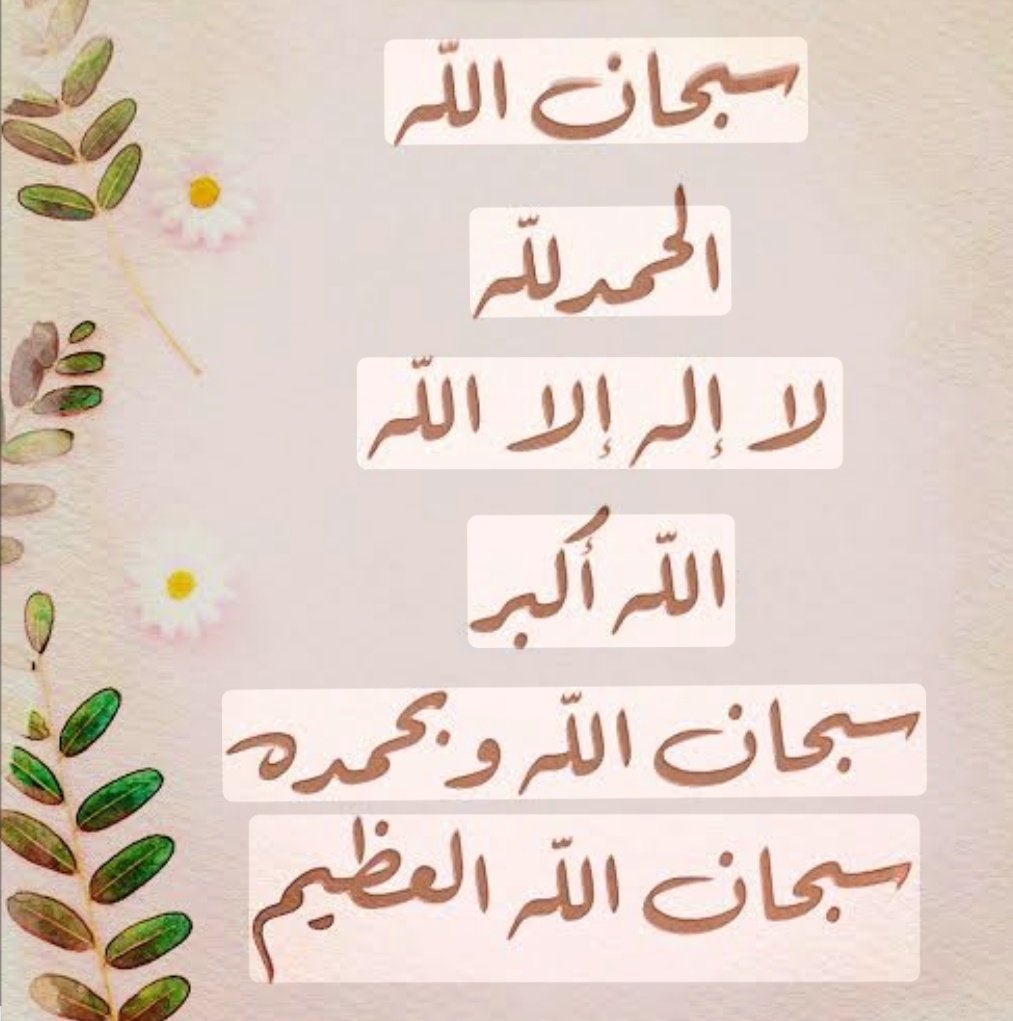 سبحان الله
الحمد لله
لا إله إلا الله
الله أكبر
سبحان الله و بحمده
سبحان الله العظيم